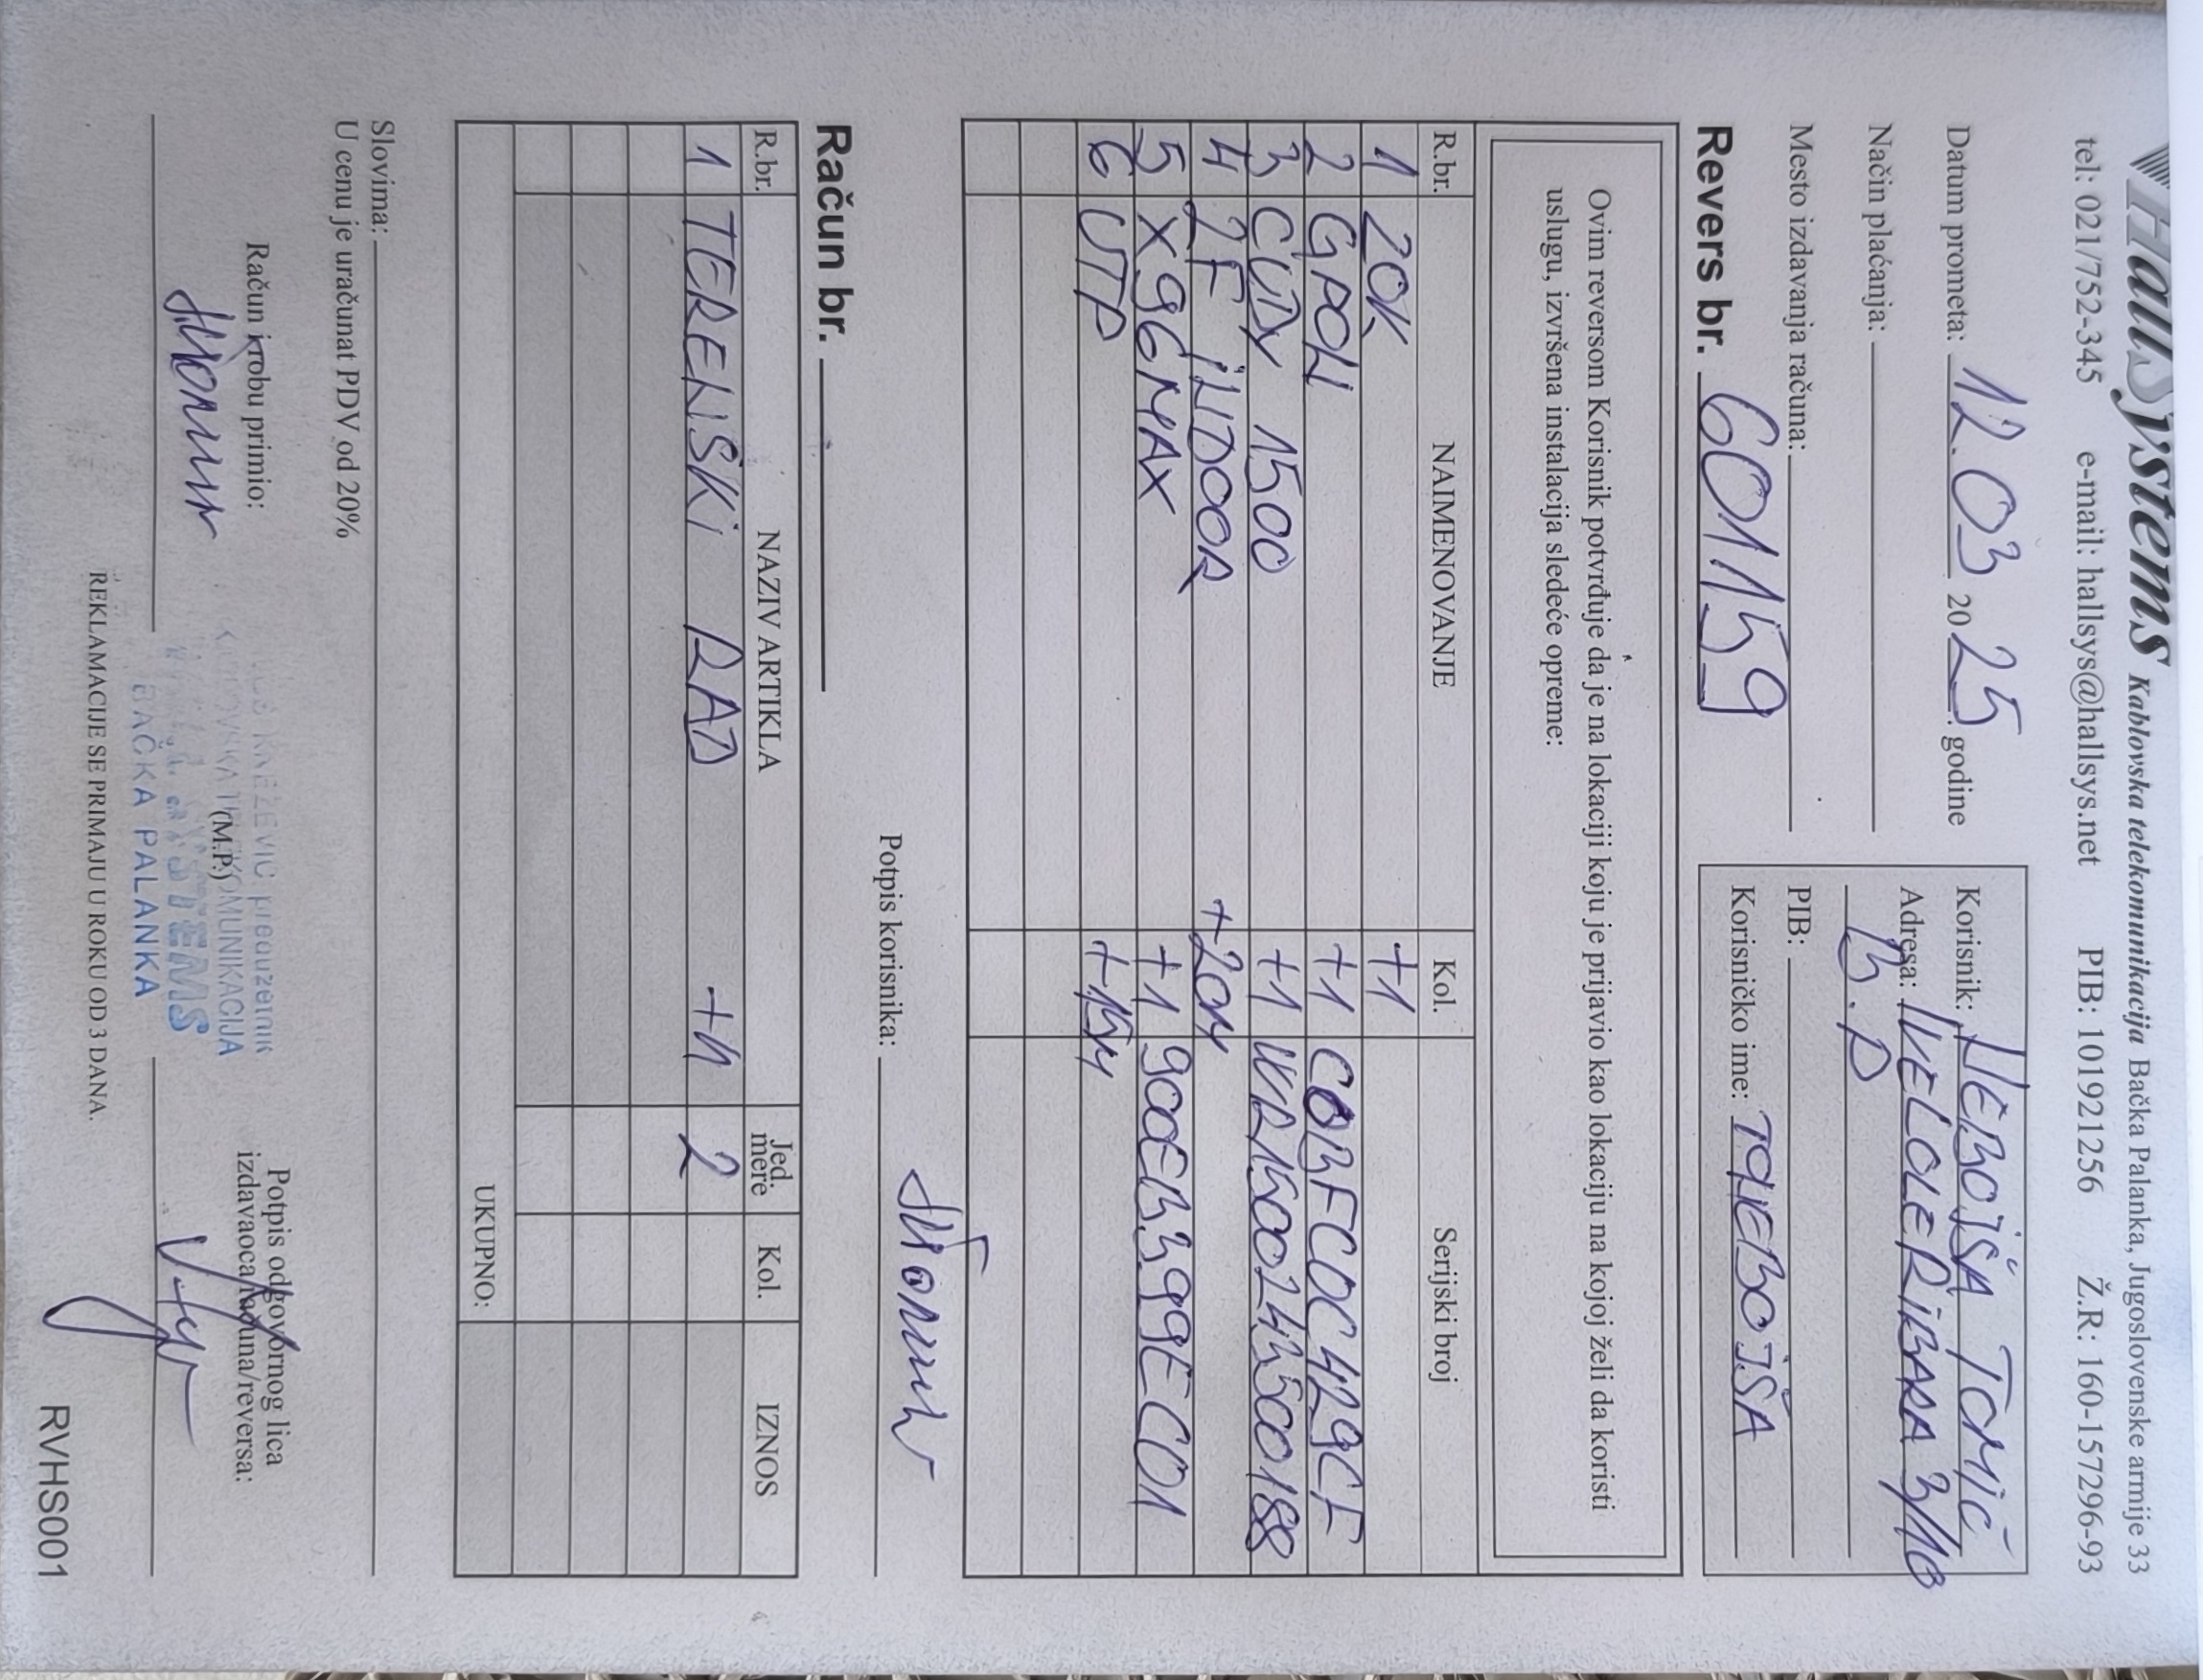 HallSystems Kablovska telekomunikacija Bačka Palanka, Jugoslovenske armije 33
tel: 021/752-345 e-mail: hallsys@hallsys.net PIB: 101921256 Ž.R: 160-157296-93
Datum prometa: 12.03 2025. godine
Način plaćanja:
Mesto izdavanja računa:
Korisnik: NEBOJŠA TOMIĆ
Adresa: IVE LOLE RIBARA 3/10
B.P
PIB:
Korisničko ime: TONEBOJŠA
Revers br. 601159
Ovim reversom Korisnik potvrđuje da je na lokaciji koju je prijavio kao lokaciju na kojoj želi da koristi
uslugu, izvršena instalacija sledeće opreme:
R.br. NAIMENOVANJE Kol. Serijski broj
1 ZOK +1
2 GPON +1 CDBFC0C429CF
3 CUDY 1500 +1 WR1500243500188
4 2F INDOOR +20M
5 X96MAX +1 900EB399EC01
6 UTP +15M
Potpis korisnika:
Račun br.
R.br. NAZIV ARTIKLA Jed. mere Kol. IZNOS
1 TERENSKI RAD +H 2
UKUPNO:
Slovima:
U cenu je uračunat PDV od 20%
Račun i robu primio:
(M.P.)
Potpis odgovornog lica
izdavaoca računa/reversa:
KNEŽEVIĆ preduzetnik
KABLOVSKA TELEKOMUNIKACIJA
SYSTEMS
BAČKA PALANKA
REKLAMACIJE SE PRIMAJU U ROKU OD 3 DANA.
RVHS001